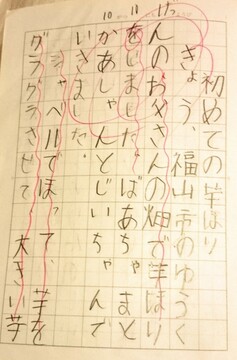 初めての芋ほり
きょう、福山市のゆうく
んのお父さんの畑で芋ほり
をしました。ばあちゃまと
かあしゃんとじいちゃんで
いきました。
シャベルでほって、芋を
グラグラさせて 大きい芋
11
10